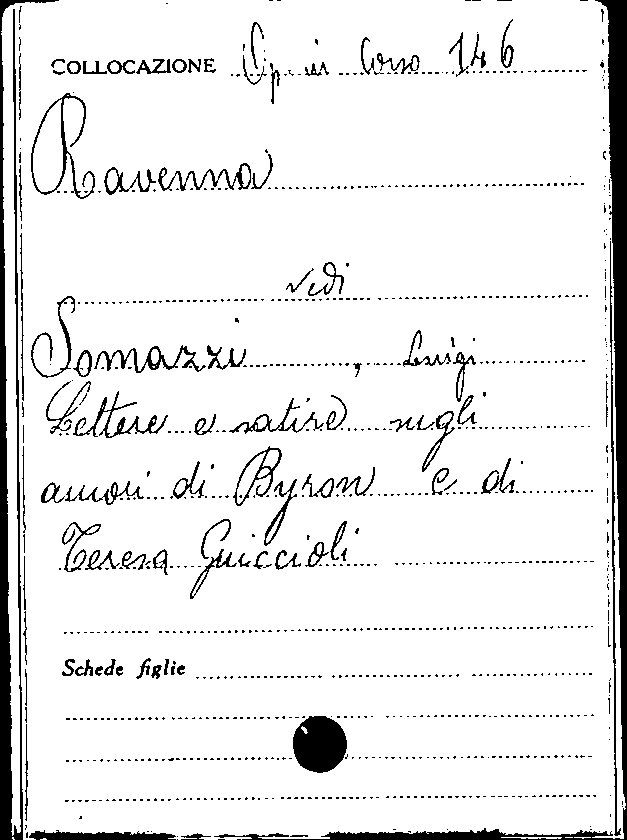 COLLOCAZIONE Op. in Corso 146
Ravenna
vedi
Somazzi, Luigi
Lettere e satire sugli
amori di Byron e di
Teresa Guiccioli
Schede figlie